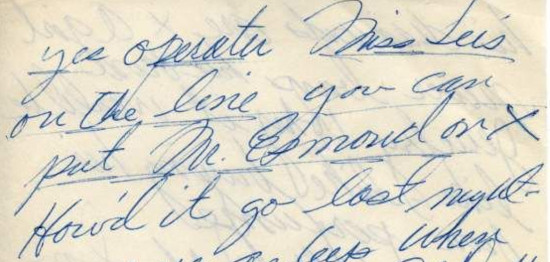 yes operater Miss Lee's
on the line you can
put Mr. Esmond on X
How'd it go last night-
asleep when